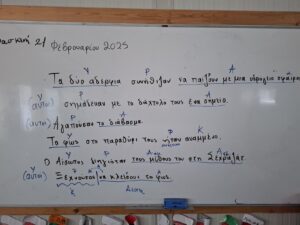 Παρασκευή 21 Φεβρουαρίου 2025
Υ Ρ Α
Τα δύο αδέρφια συνήθιζαν να παίζουν με μια υδρόγειο σφαίρα.
Υ Ρ Α
(αυτοί) σημάδευαν με το δάχτυλό τους ένα σημείο.
(αυτοί) Αγαπούσαν το διάβασμα.
Υ Ρ Κ
Το φως στο παράθυρό τους ήταν αναμμένο.
Ο Αίσωπος διηγιόταν τους μύθους του στη
(αυτοί) Ξεχνούσαν να κλείσουν το φως.